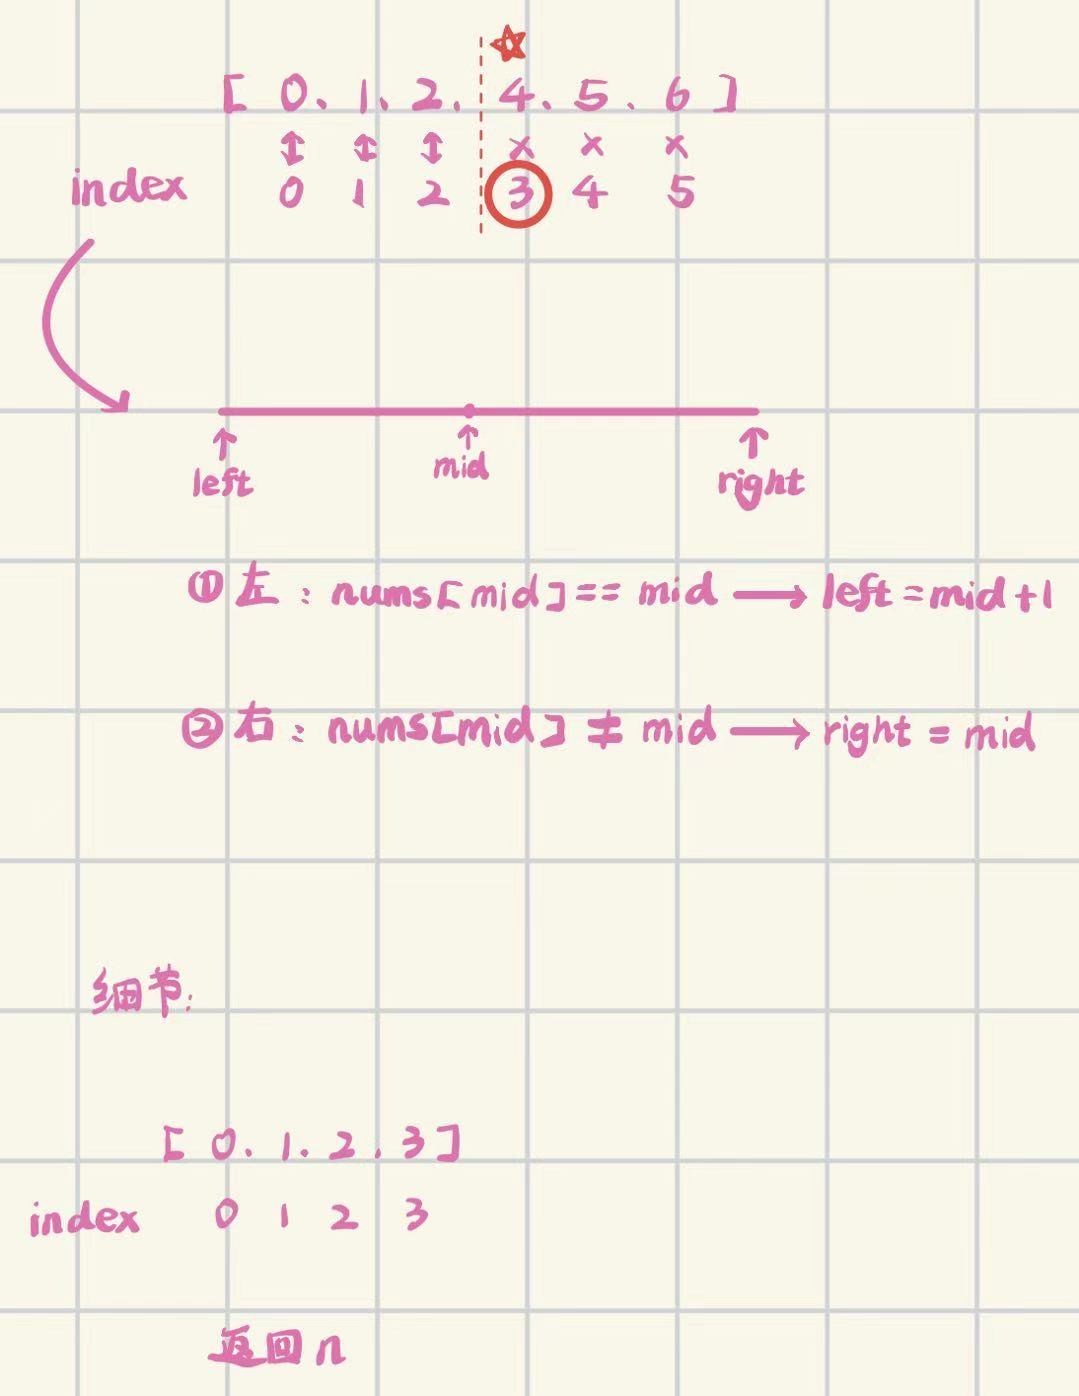 [ 0、1、2、4、5、6 ]
index 0 1 2 3 4 5
left mid right
① 左：nums[mid]== mid → left = mid+1
② 右：nums[mid] ≠ mid → right = mid
细节：
[ 0、1、2、3]
index 0 1 2 3
返回n